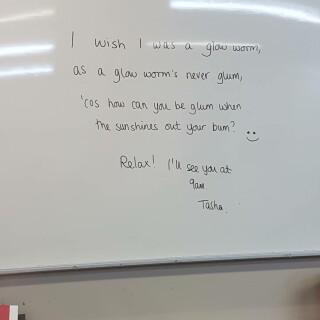 I wish I was a glow worm,
as a glow worm's never glum,
'cos how can you be glum when
the sunshines out your bum?
Relax! I'll see you at
9am
Tasha.